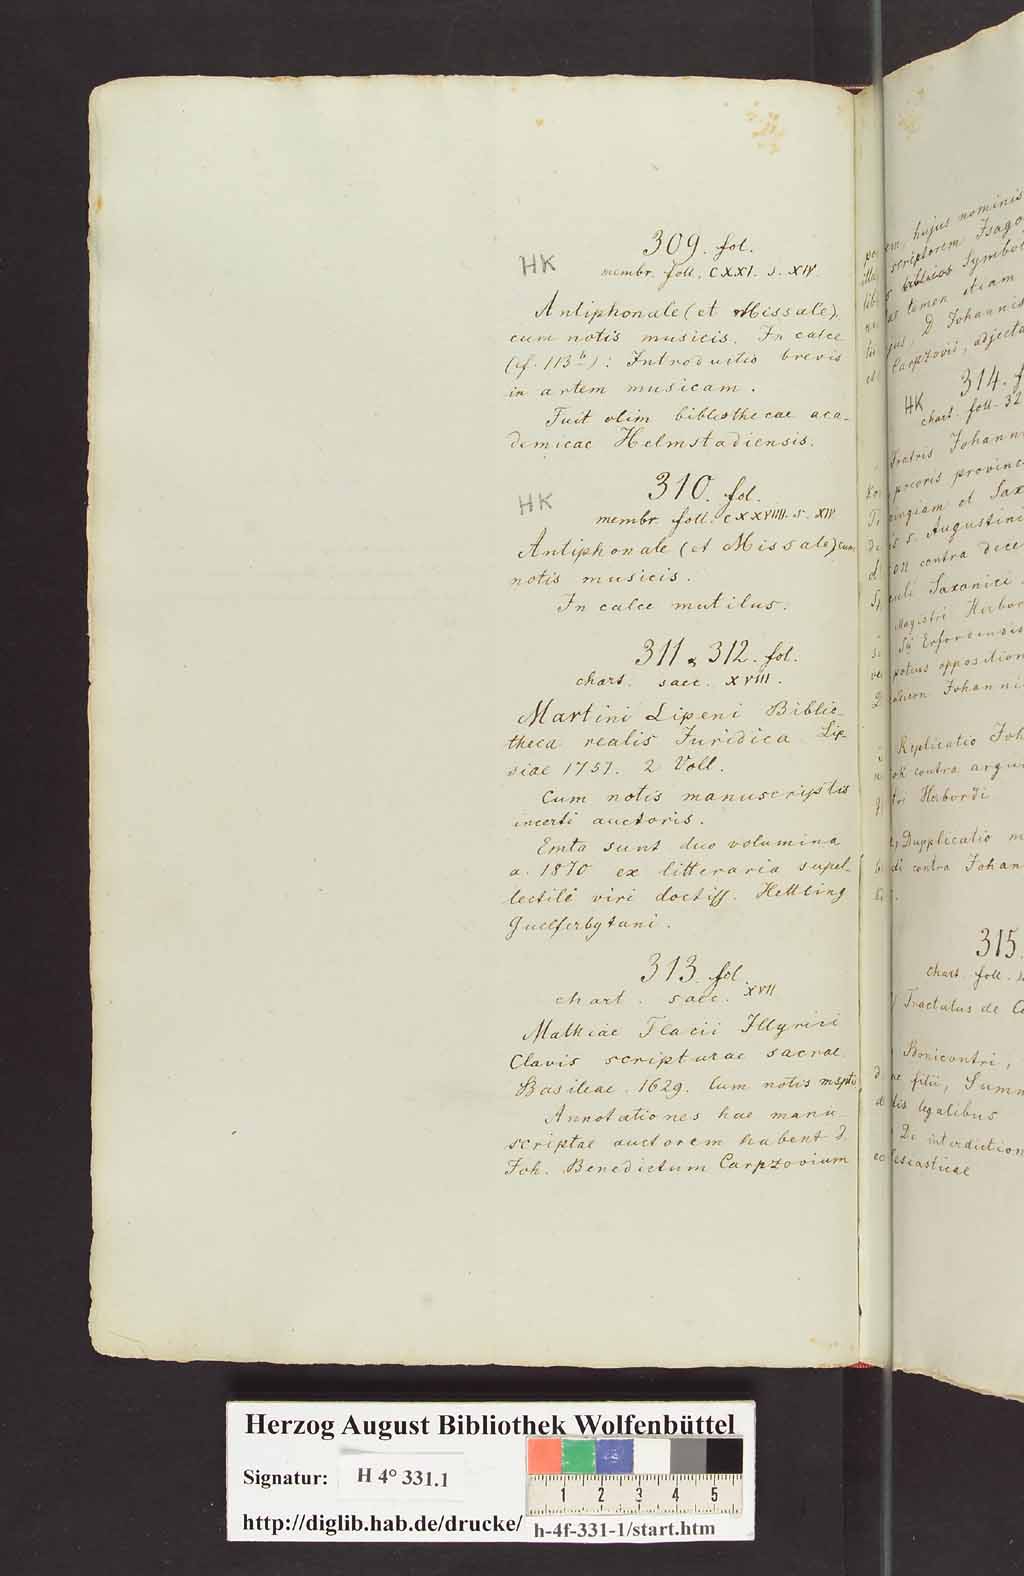 309. fol.
HK
membr. foll. CXXI. s. XIV
Antiphonale (et Missale)
cum notis musicis. In calce
(f. 113b): Introductio brevis
in artem musicam.
Fuit olim bibliothecae aca-
demicae Helmstadiensis.
310. fol.
HK
membr. foll. CXXVIIII. s. XIV
Antiphonale (et Missale) cum
notis musicis.
In calce mutilus.
311 & 312. fol.
chart. saec. XVIII.
Martini Lipeni Biblio-
theca realis Juridica Lip-
siae 1757. 2 Voll.
Cum notis manuscriptis
incerti auctoris.
Emta sunt duo volumina
a. 1870 ex litteraria supel-
lectili viri doctiss. Hettling
Guelferbytani.
313. fol.
chart. saec. XVII
Mathiae Flacii Illyrici
Clavis scripturae sacrae.
Basileae. 1629. Cum notis mspti
Annotationes hae manu-
scriptae auctorem habent d.
Joh. Benedictum Carpzovium
hujus nominis
scriptorem Isago
biblicos Symbol
tamen etiam
D Johannis
Carpzovii, adjecta
314. f
HK
chart. foll. 32
Fratris Johann
provinc
et Sax
s. Augustini
contra dece
Saxonici
Magistri Herbor
Erfordensis
potius opposition
Johanni
Replicatio Joh
contra argu
tri Herbordi
Dupplicatio m
di contra Johan
315.
chart. foll.
Tractatus de C
Bonicontri,
filii, Summ
legalibus
De interdiction
esiasticae
Herzog August Bibliothek Wolfenbüttel
Signatur: H 4° 331.1
1 2 3 4 5
http://diglib.hab.de/drucke/ h-4f-331-1/start.htm